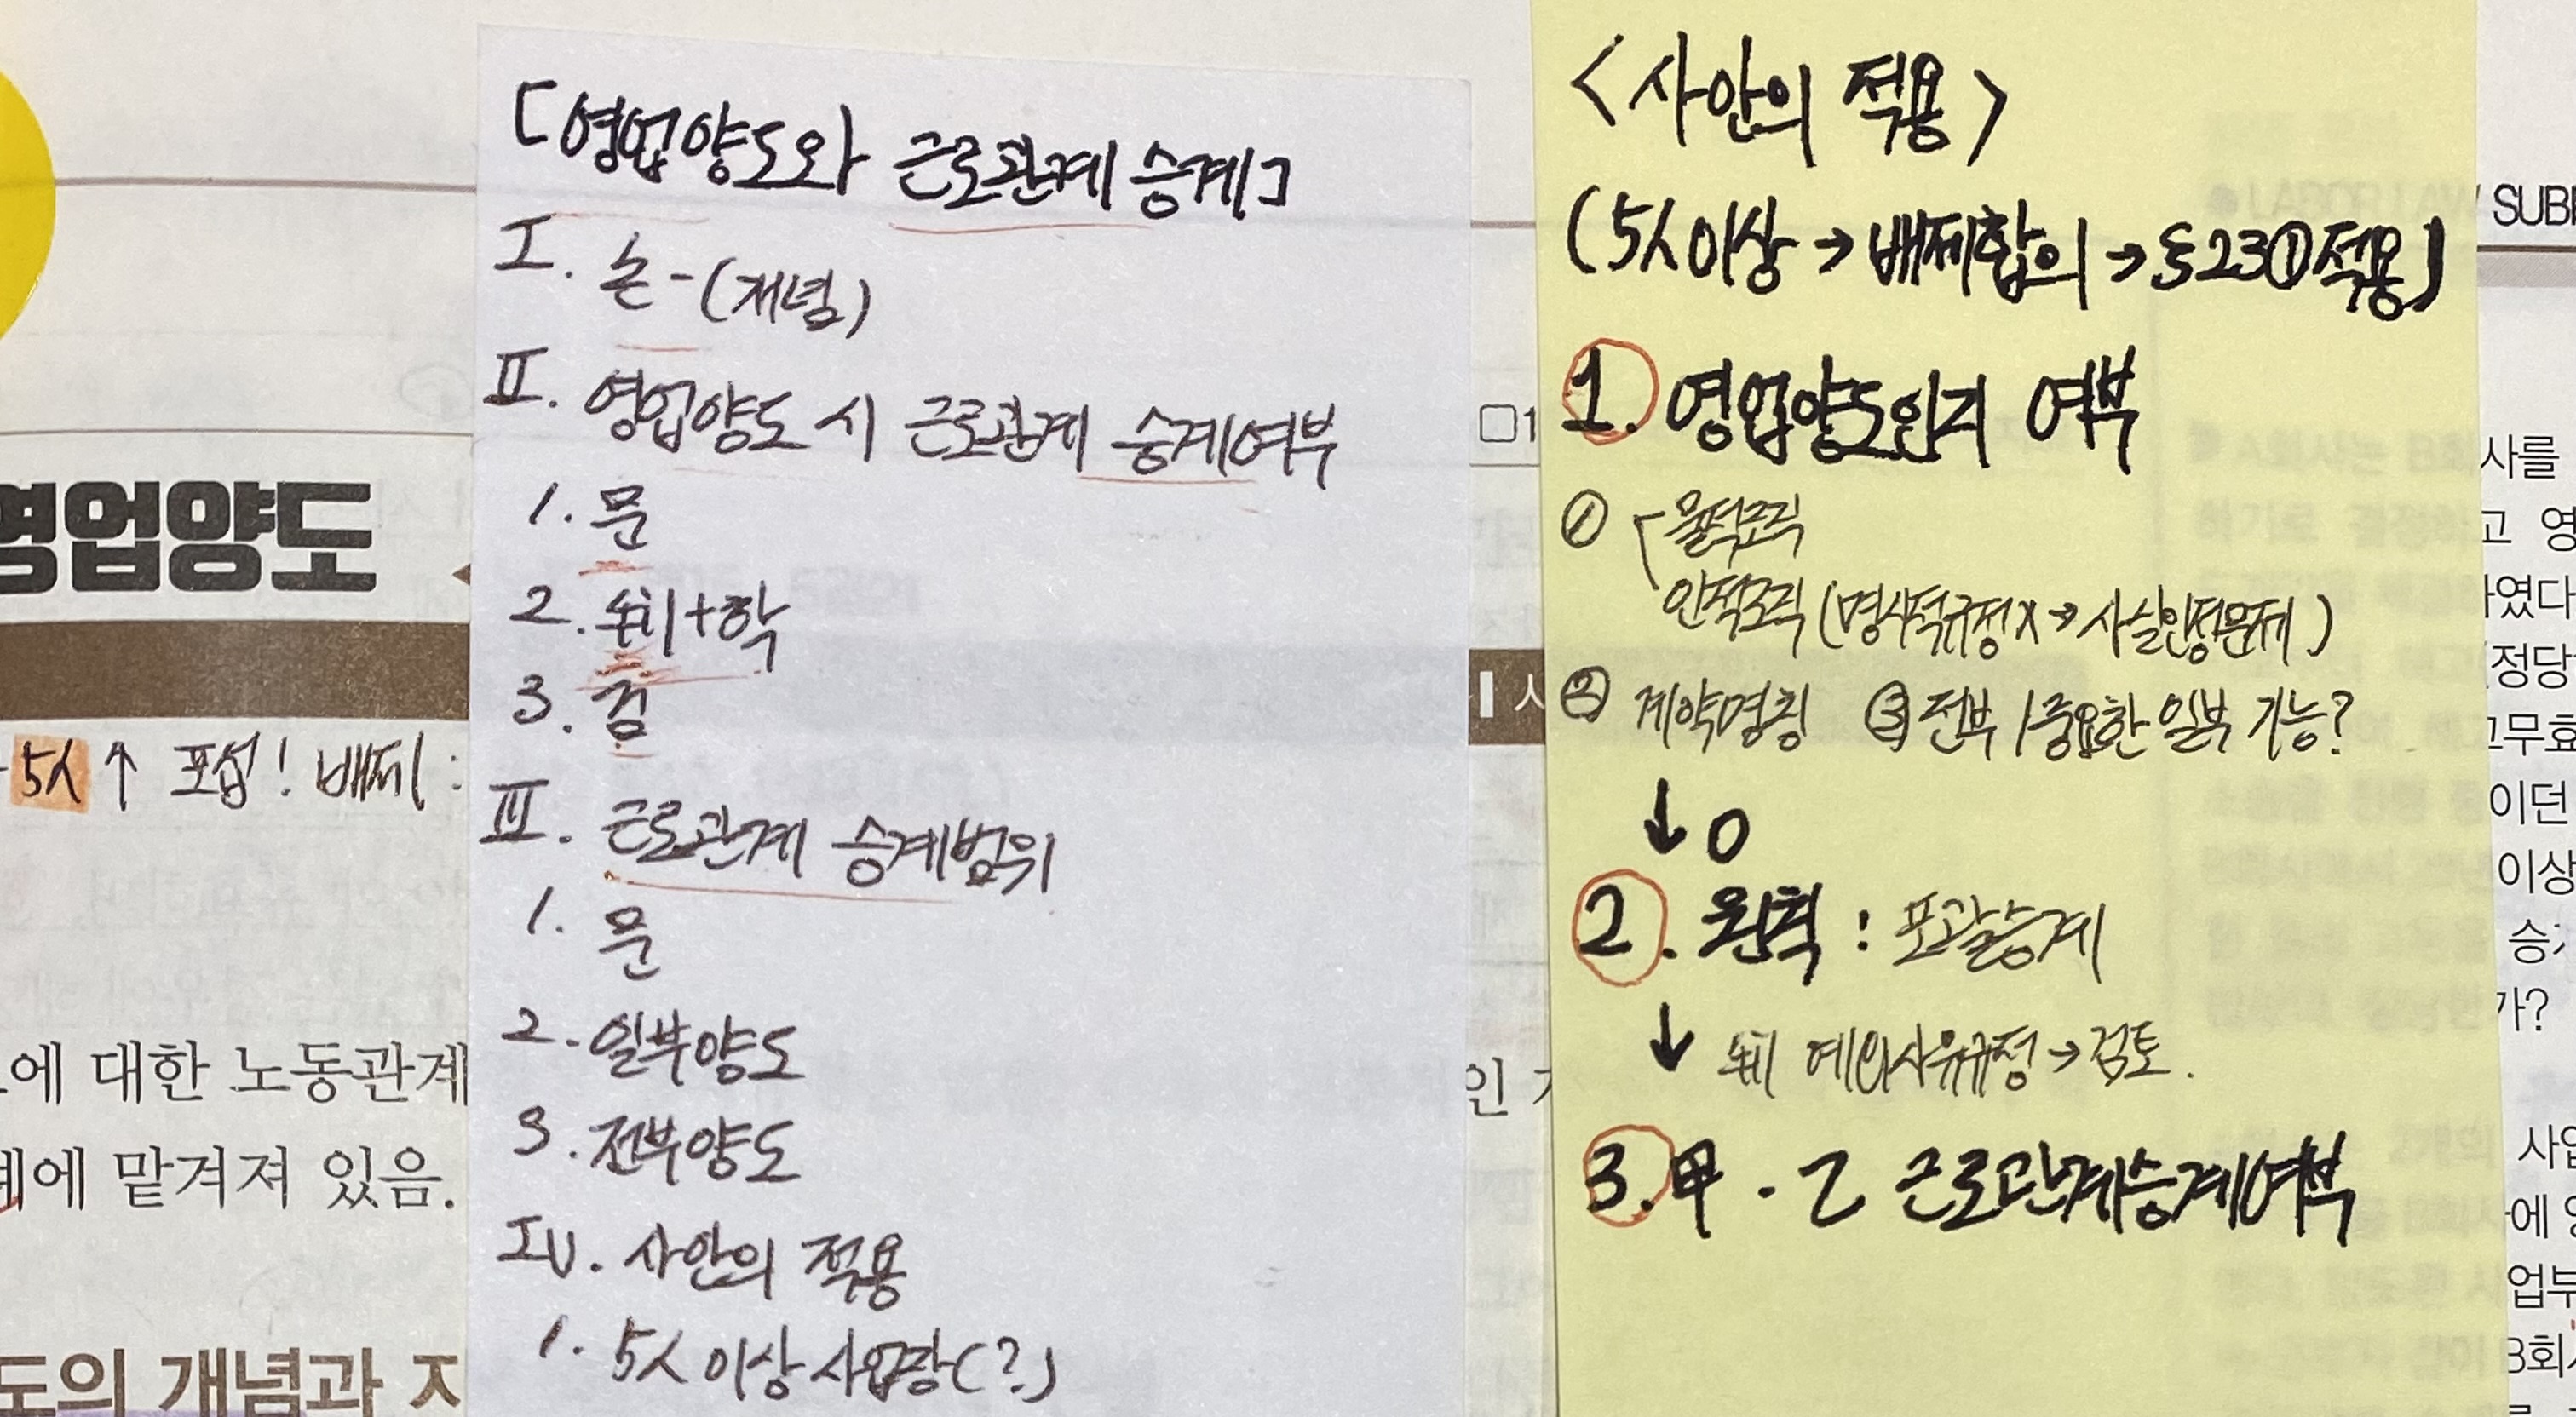 영업양도
5人↑ 포섭! 배제:
에 대한 노동관계
에 맡겨져 있음.
도의 개념과
[영업양도와 근로관계 승계]
I. 논-(개념)
II. 영업양도 시 근로관계 승계여부
1. 문
2. 判+학
3. 검
III. 근로관계 승계범위
1. 문
2. 일부양도
3. 전부양도
IV. 사안의 적용
1. 5人이상 사업장(?)
□1
인
<사안의 적용>
(5人이상→배제합의→§23①적용)
1. 영업양도인지 여부
① 물적조직
인적조직(명시적규정X→사실인정문제)
② 계약명칭 ③ 전부/중요한 일부 가능?
↓ O
2. 원칙: 포괄승계
↓ 判 예외사유규정→검토.
3. 甲·乙 근로관계승계여부
사를
고 영
였다
정당
무효
이던
이상
승
가?
사업
에
업부
B회